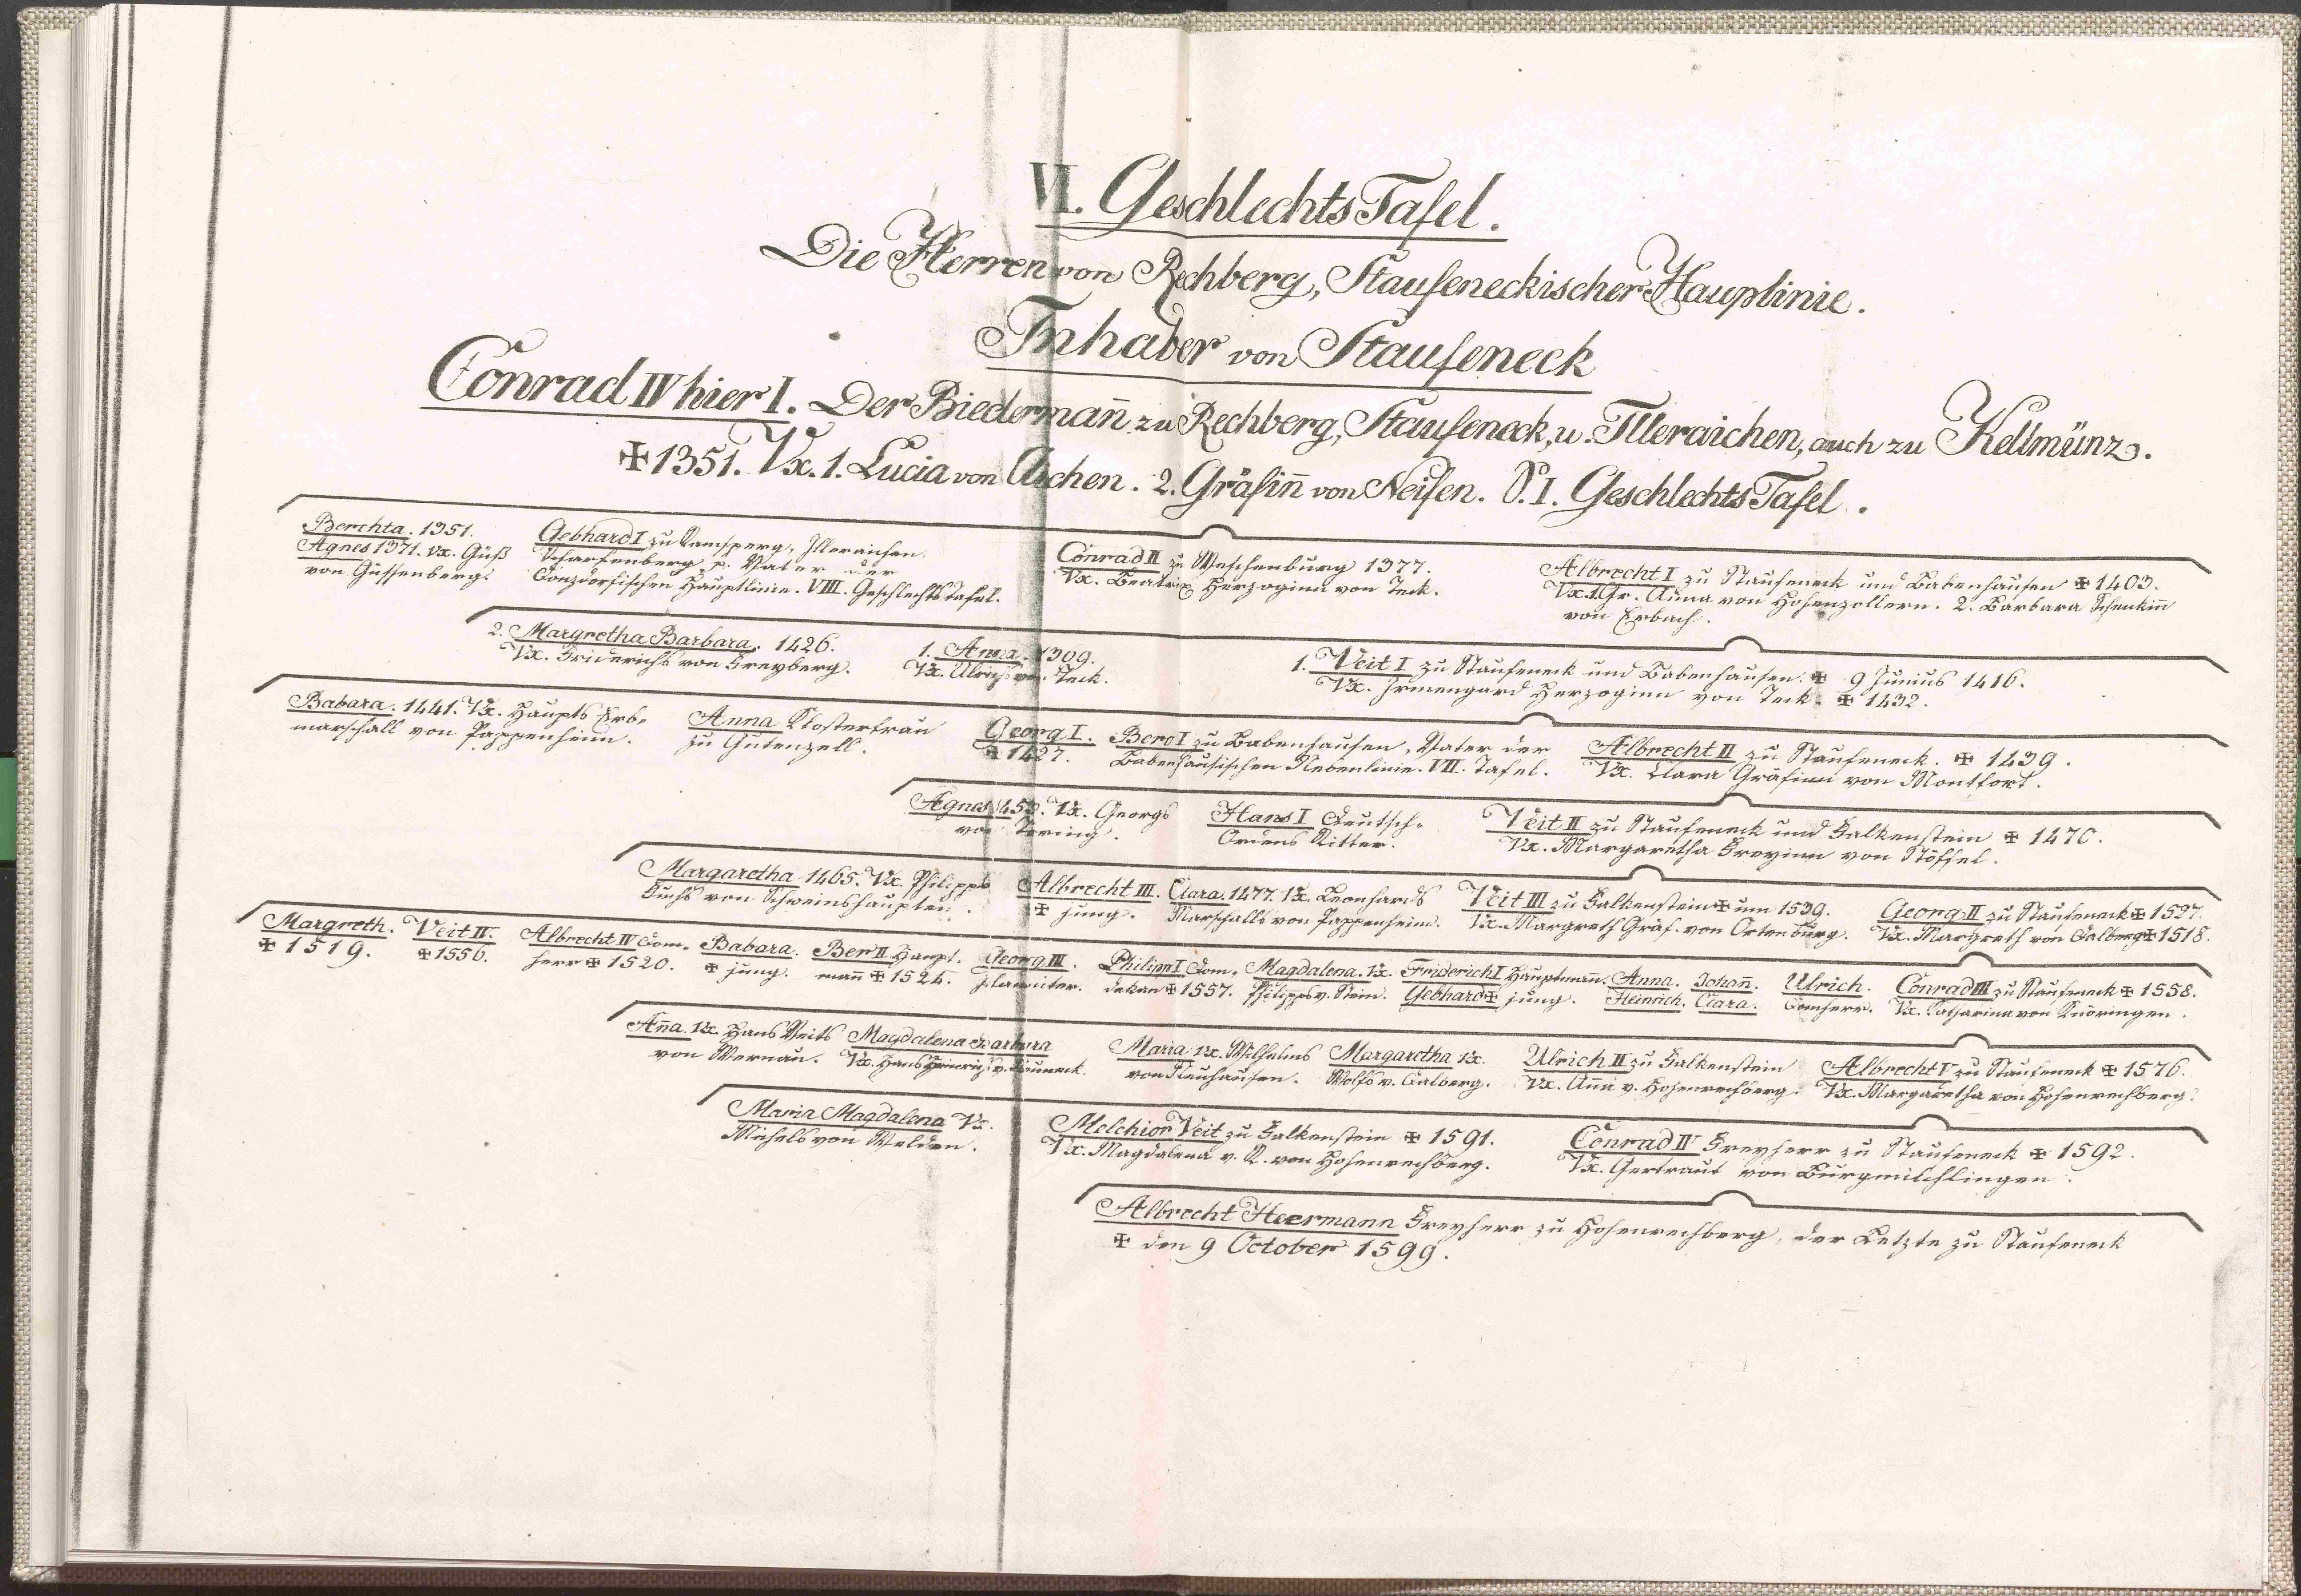 VI. GeschlechtsTafel.
Die Herren von Rechberg, Staufeneckischer Hauptlinie.
Inhaber von Staufeneck
Conrad IV hier I. Der Biederman̄ zu Rechberg, Staufeneck, u. Illeraichen, auch zu Kellmünz.
✠ 1351. Vx. 1. Lucia von Aichen. 2. Gräfin̄ von Neifen. S. I. GeschlechtsTafel.
Berchta. 1351.
Agnes 1371. Vx. Güß
von Güssenberg.
Gebhard I zu Ramsperg, Illeraichen.
Scharfenberg p. Vater der
Donzdorfischen Hauptlinie. VIII. GeschlechtsTafel.
Conrad II zu Weschenburg 1377.
Vx. Beatrix Herzoginn von Teck.
Albrecht I zu Staufeneck und Babenhausen ✠ 1403.
Vx. 1. Gr. Anna von Hohenzollern. 2. Barbara Schenkin̄
von Erbach.
2. Margretha Barbara. 1426.
Vx. Friderichs von Freyberg.
1. Anna. 1309.
Vx. Ulrichs von Teck.
1. Veit I zu Staufeneck und Babenhausen. ✠ 9 Junius 1416.
Vx. Irmengard Herzoginn von Teck. ✠ 1432.
Babara. 1441. Vx. Haupts Erb-
marschall von Pappenheim.
Anna Klosterfrau
zu Gutenzell.
Georg I.
✠ 1427.
Bero I zu Babenhausen, Vater der
Babenhausischen Nebenlinie. VII. Tafel.
Albrecht II zu Staufeneck. ✠ 1439.
Vx. Clara Gräfinn von Montfort.
Agnes 1453. Vx. Georgs
von Törring.
Hans I Deutsch-
Ordens Ritter.
Veit II zu Staufeneck und Falkenstein ✠ 1470.
Vx. Margaretha Freyinn von Stöffel.
Margaretha 1465. Vx. Philipps
Fuchs von Schweinshaupten.
Albrecht III.
✠ jung.
Clara. 1477. Vx. Leonhards
Marschalls von Pappenheim.
Veit III zu Falkenstein ✠ um 1539.
Vx. Margreth Gräf. von Ortenburg.
Georg II zu Staufeneck ✠ 1527.
Vx. Margreth von Dalberg ✠ 1518.
Margreth.
✠ 1519.
Veit IV.
✠ 1556.
Albrecht IV Dom-
herr ✠ 1520.
Babara.
✠ jung.
Ber II Haupt-
man̄ ✠ 1524.
Georg III.
Philipp I Dom-
dekan ✠ 1557.
Magdalena. Vx.
Philipps v. Stein.
Friderich I Hauptman̄.
Gebhard ✠ jung.
Anna.
Heinrich.
Johan̄.
Clara.
Ulrich.
Domherr.
Conrad III zu Staufeneck ✠ 1558.
Vx. Catharina von Knöringen.
An̄a. Vx. Hans Veits
von Wernau.
Magdalena Barbara
Vx. Hans Heinrichs v. Neuneck.
Maria Vx. Wilhelms
von Neuhausen.
Margaretha Vx.
Wolfs v. Dalberg.
Ulrich II zu Falkenstein
Vx. Anna v. Hohenrechberg.
Albrecht V zu Staufeneck ✠ 1576.
Vx. Margaretha von Hohenrechberg.
Maria Magdalena Vx.
Michels von Welden.
Melchior Veit zu Falkenstein ✠ 1591.
Vx. Magdalena v. R. von Hohenrechberg.
Conrad IV Freyherr zu Staufeneck ✠ 1592.
Vx. Gertraut von Burgmilchlingen.
Albrecht Heermann Freyherr zu Hohenrechberg, der Letzte zu Staufeneck
✠ den 9 October 1599.